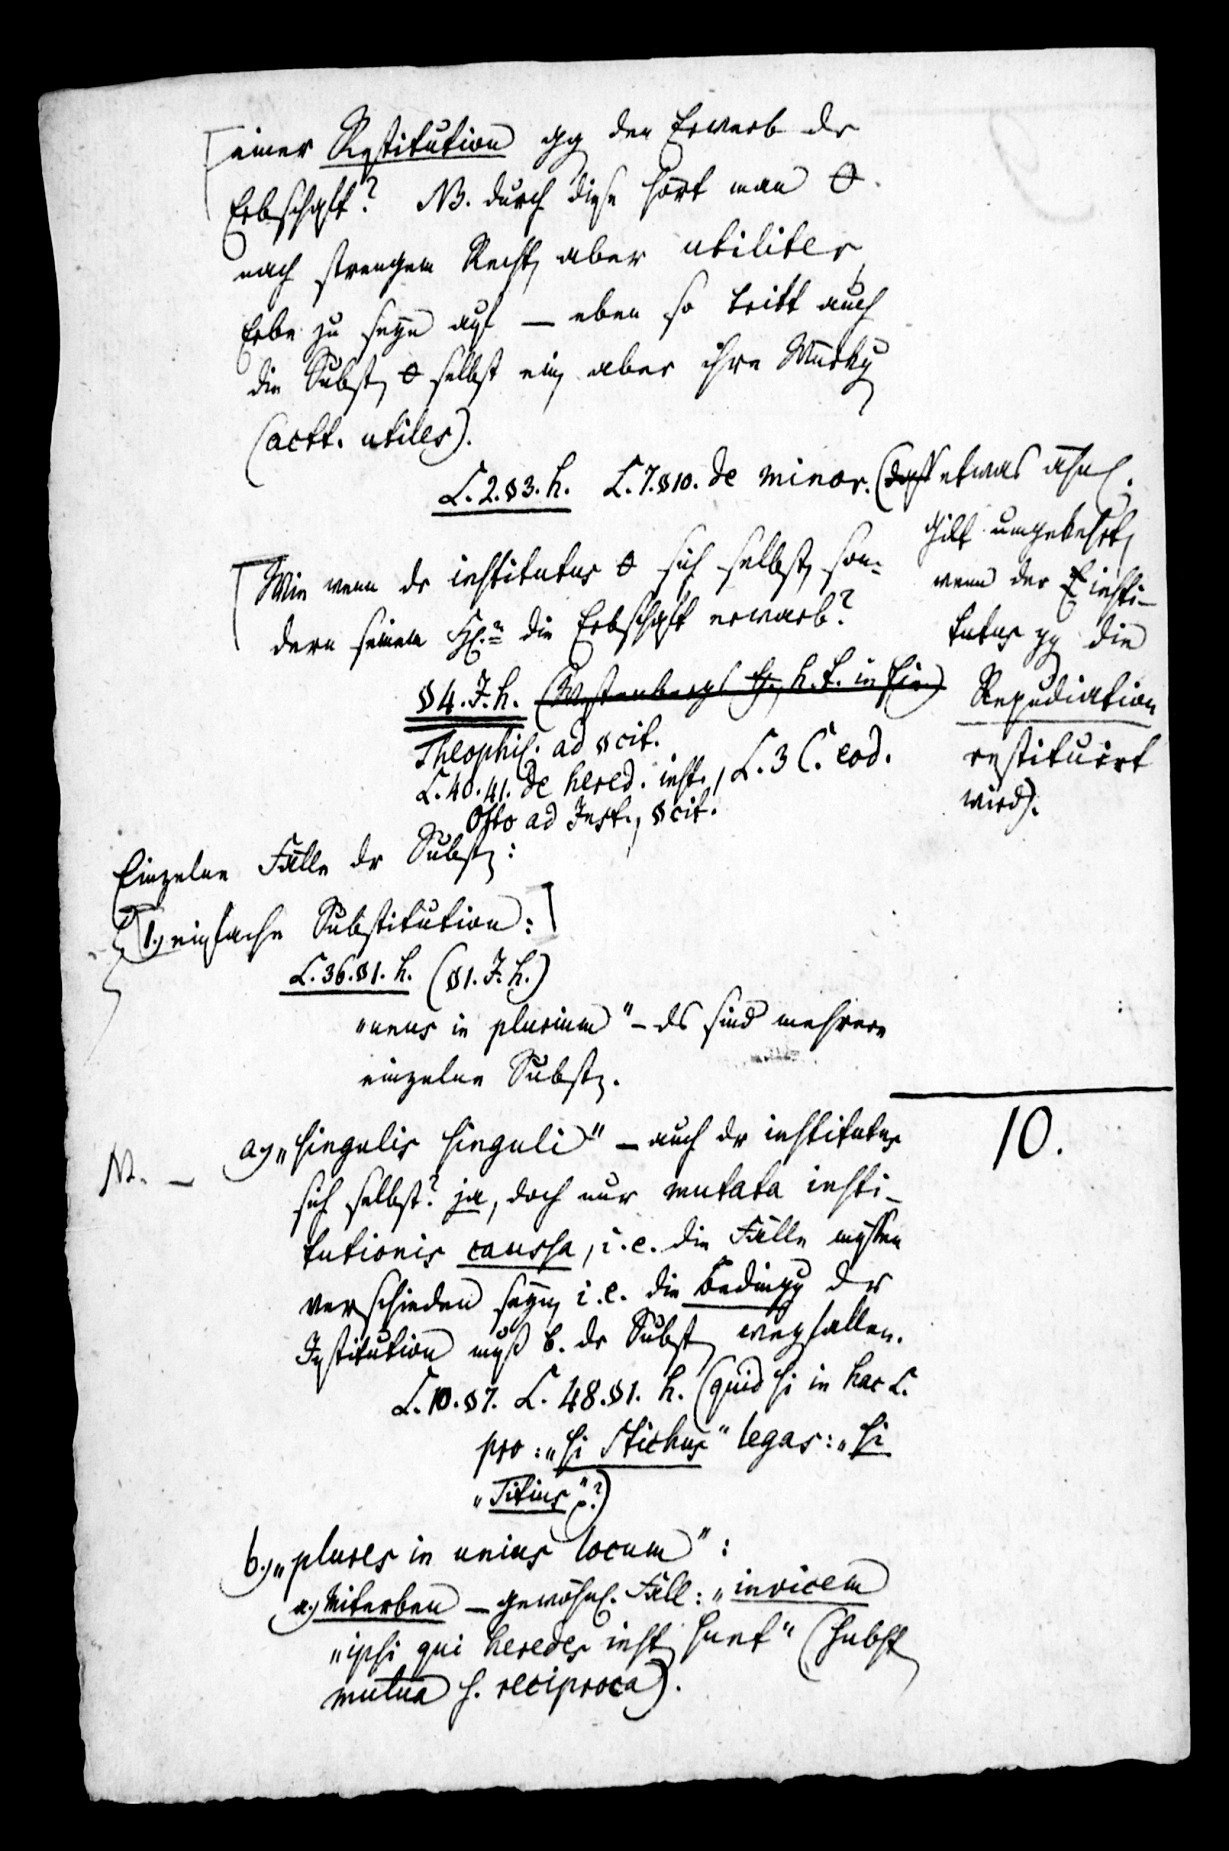 einer Restitution gg den Erwerb dr
Erbschaft? NB. durch diese hört man 0
nach strengem Recht, aber utiliter
Erbe zu seyn auf — eben so tritt auch
die Subst. 0 selbst ein, aber ihre Wirkg
(actt. utiles).
L. 2. §3. h. L. 7. §10. de minor. (daß etwas ähnl.
gilt umgekehrt,
wenn der insti-
tutus gg die
Repudiation
restituirt
wird).
Wie wenn dr institutus 0 sich selbst, son-
dern seinem die Erbschaft erwarb?
§4. J. h. (Westenberg h. t. in fin)
Theophil. ad §cit.
L. 40. 41. de hered. inst., L. 3 C. eod.
Otto ad Inst., §cit.
Einzelne Fälle dr Subst.:
1.) einfache Substitution:
L. 36. §1. h. (§1. J. h.)
"unus in plurium" – ds sind mehrere
einzelne Subst.
10.
NB. — a.) „singulis singuli" — auch dr institutus
sich selbst? ja, doch nur mutata insti-
tutionis caussa, i. e. die Fälle müssen
verschieden seyn, i. e. die Bedingg der
Institution muß b. dr Subst. wegfallen.
L. 10. §7. L. 48. §1. h. (quid si in hac L.
pro: „si Stichus" legas: „si
„Titius"?)
b.) „plures in unius locum":
a.) Miterben — gewöhnl. Fall: „invicem
„ipsi qui heredes inst. sunt" (subst.
mutua s. reciproca).